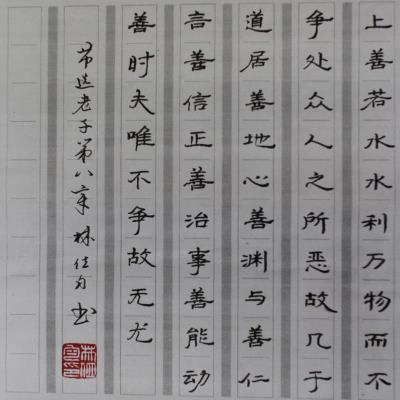 上善若水水利万物而不
争处众人之所恶故几于
道居善地心善渊与善仁
言善信正善治事善能动
善时夫唯不争故无尤
节选老子第八章 林仕 书